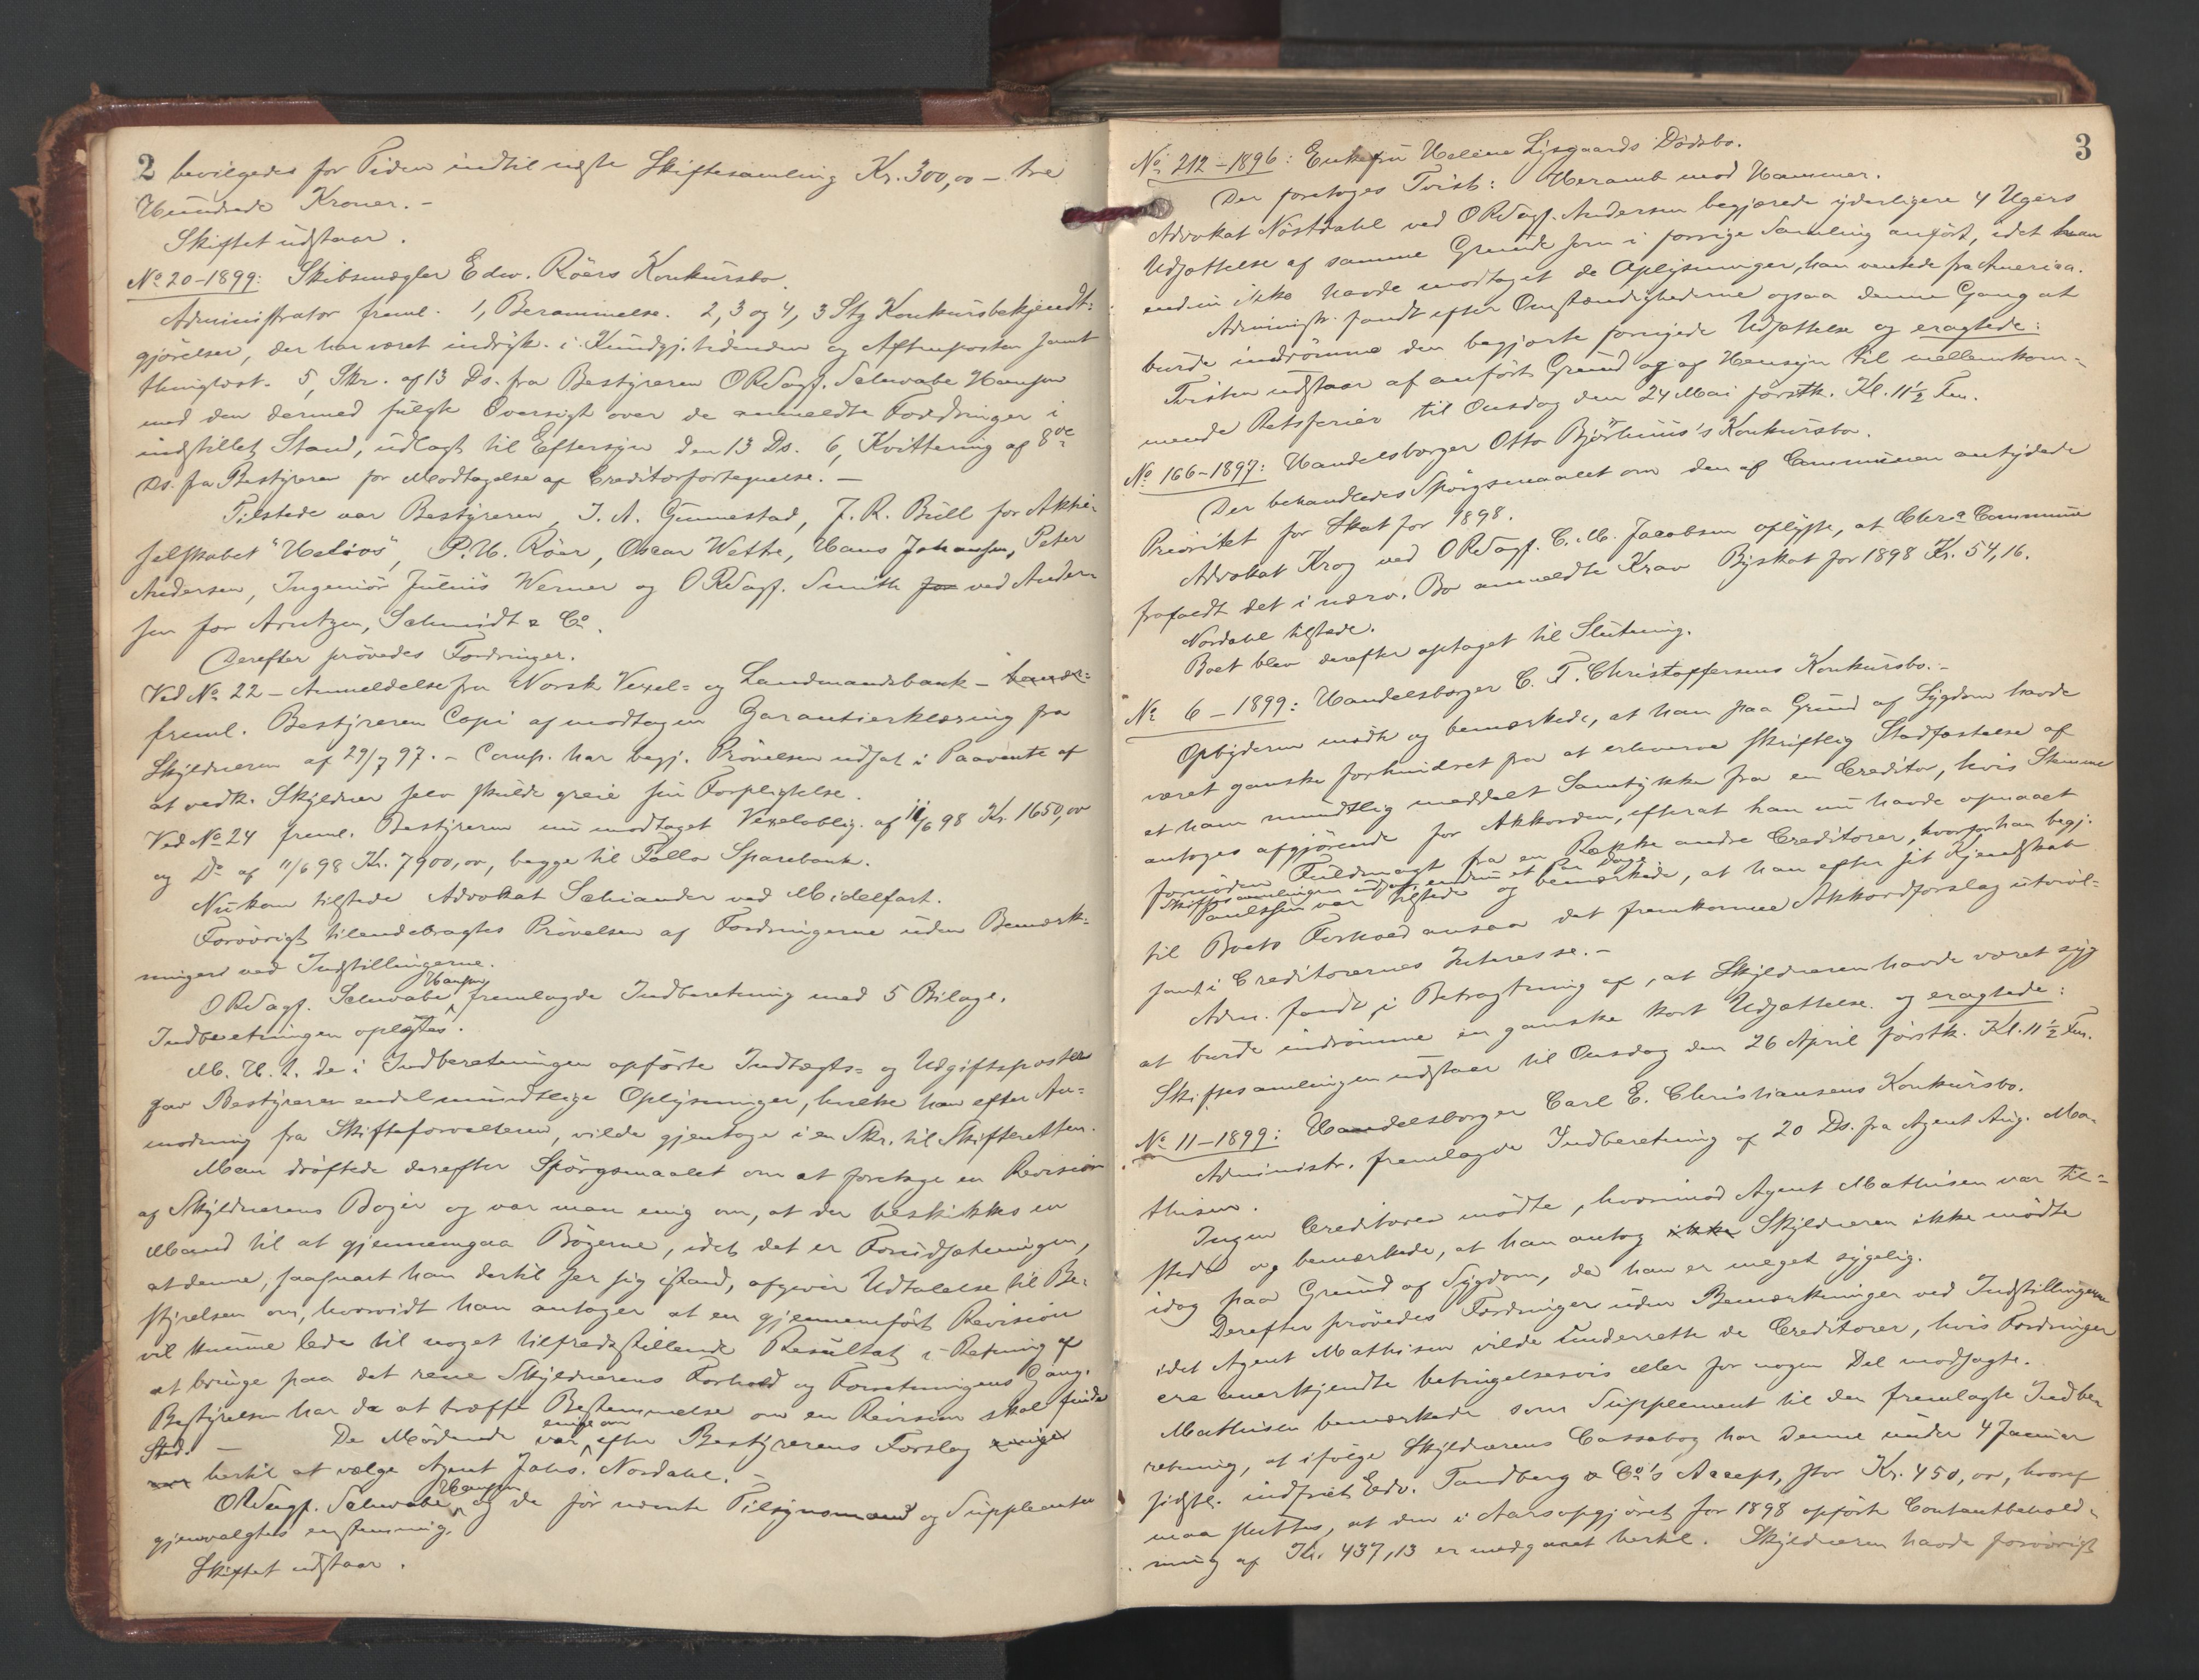 2 bevilgedes for Tiden indtil næste Skiftesamling Kr. 300,00 – tre
Hundrede Kroner. –
Skiftet udstaar.
No 20-1899: Skibsmægler Edw. Röers Konkursbo.
Administrator freml. 1, Berammelse. 2, 3 og 4, 3 Stg Konkursbekjendt-
gjörelser, der har været indryk. i Kundgj.tidenden og Aftenposten samt
thinglæst. 5, Skr. af 13 Ds. fra Bestyreren ORSagf. Schwabe Hansen
med den dermed fulgte Oversigt over de anmeldte Fordringer i
indstillet Stand, udlagt til Eftersyn den 13 Ds. 6, Kvittering af 8de
Ds. fra Bestyreren for Modtagelse af Creditorfortegnelse. –
Tilstede var Bestyreren, J. A. Gunnestad, J. R. Bull for Aktie-
selskabet "Helios", P. H. Röer, Oscar Wette, Hans Johansen, Peter
Andersen, Ingeniör Julius Werner og ORSagf. Smith for ved Ander-
sen for Arntzen, Schmidt & Co.
Derefter prövedes Fordringer.
Ved No 22 – Anmeldelse fra Norsk Vexel- og Landmandsbank –
freml. Bestyreren Copi af modtagen Garantierklæring fra
Skyldneren af 29/7 97. – Comp. har begj. Prövelsen udsat i Paavente af
at vedk. Skyldner selv skulde greie sin Forpligtelse.
Ved No 24 freml. Bestyreren nu modtaget Vexeloblig. af 11/6 98 Kr. 1650,00
og Do af 11/6 98 Kr. 7900,00, begge til Follo Sparebank.
Nu kom tilstede Advokat Schiander ved Midelfart.
Forövrigt tilendebragtes Prövelsen af Fordringerne uden Bemærk-
ninger ved Indstillingerne.
Hansen
ORSagf. Schwabe fremlagde Indberetning med 5 Bilage.
Indberetningen oplæstes.
M. H. t. de i Indberetningen opförte Indtægts- og Udgiftsposter
gav Bestyreren endel mundtlige Oplysninger, hvilke han efter An-
modning fra Skifteforvalteren, vilde gjentage i en Skr. til Skifteretten.
Man dröftede derefter Spörgsmaalet om at foretage en Revision
af Skyldnerens Böger og var man enig om, at der beskikkes en
Mand til at gjennemgaa Bögerne, idet det er Forudsætningen,
at denne, saasnart han dertil ser sig istand, afgiver Udtalelse til Be-
styrelsen om, hvorvidt han antager at en gjennemfört Revision
vil kunne lede til noget tilfredsstillende Resultat i Retning af
at bringe paa det rene Skyldnerens Forhold og Forretningens Gang.
Bestyrelsen har da at træffe Bestemmelse om en Revision skal finde
Sted. – De Mödende var enige om efter Bestyrerens Forslag enige
hertil at vælge Agent Johs. Nordahl. –
Hansen
ORSagf. Schwabe og de för nævnte Tilsynsmænd og Suppleanter
gjenvalgtes enstemmig.
Skiftet udstaar.
3
No 212-1896: Enkefru Helene Lysgaards Dödsbo.
Der foretoges Tvist: Heramb mod Hammer.
Advokat Nöstdahl ved ORSagf. Andersen begjærede yderligere 4 Ugers
Udsættelse af samme Grunde som i forrige Samling anfört, idet han
endnu ikke havde modtaget de Oplysninger, han ventede fra America.
Administr. fandt efter Omstændighederne ogsaa denne Gang at
burde indrömme den begjærte forrigede Udsættelse og eragtede:
Tvisten udstaar af anfört Grund og af Hensyn til mellemkom-
mende Retsferier til Onsdag den 24 Mai förstk. Kl. 11½ Fm.
No 166-1897: Handelsborger Otto Björhuus's Konkursbo.
Der behandledes Spörgsmaalet om den af Communen antydede
Prioritet for Skat for 1898.
Advokat Krog ved ORSagf. C. M. Jacobsen oplyste, at Chra Commune
frafaldt det i nærv. Bo anmeldte Krav Byskat for 1898 Kr. 54,16.
Nordahl tilstede.
Boet blev derefter optaget til Slutning.
No 6-1899: Handelsborger C. F. Christoffersens Konkursbo. –
Opbyderen mödte og bemærkede, at han paa Grund af Sygdom havde
været ganske forhindret fra at erhverve skriftlig Stadfæstelse af
et ham mundtlig meddelt Samtykke fra en Creditor, hvis Stemme
antoges afgjörende for Akkorden, efterat han nu havde opnaaet
fornöden Fuldmagt fra en Række andre Creditorer, hvorfor han begj.
Skiftesamlingen udsat endnu et Par Dage.
Paulsson var tilstede og bemærkede, at han efter sit Kjendskab
til Boets Forhold ansaa det fremkomne Akkordforslag utvivl-
somt i Creditorernes Interesse. –
Adm. fandt, i Betragtning af, at Skyldneren havde været syg
at burde indrömme en ganske kort Udsættelse og eragtede:
Skiftesamlingen udstaar til Onsdag den 26 April förstk. Kl. 11½ Fm.
No 11-1899: Handelsborger Carl E. Christiansens Konkursbo.
Administr. fremlagde Indberetning af 20 Ds. fra Agent Aug. Ma-
thisen.
Ingen Creditorer mödte, hvorimod Agent Mathisen var til-
stede og bemærkede, at han antog ikke Skyldneren ikke mödte
idag paa Grund af Sygdom, da han er meget sygelig.
Derefter prövedes Fordringer uden Bemærkninger ved Indstillingerne
idet Agent Mathisen vilde underrette de Creditorer, hvis Fordringer
ere anerkjendte betingelsesvis eller for nogen Del modsagte.
Mathisen bemærkede som Supplement til den fremlagte Indbe-
retning, at ifölge Skyldnerens Cassabog har denne under 4 Januar
sidstl. indfriet Edv. Tandberg & Co's Accept, stor Kr. 450,00, hvoraf
maa sluttes, at den i Aarsopgjöret for 1898 opförte Contantbehold-
ning af Kr. 437,13 er medgaaet hertil. Skyldneren havde forövrigt